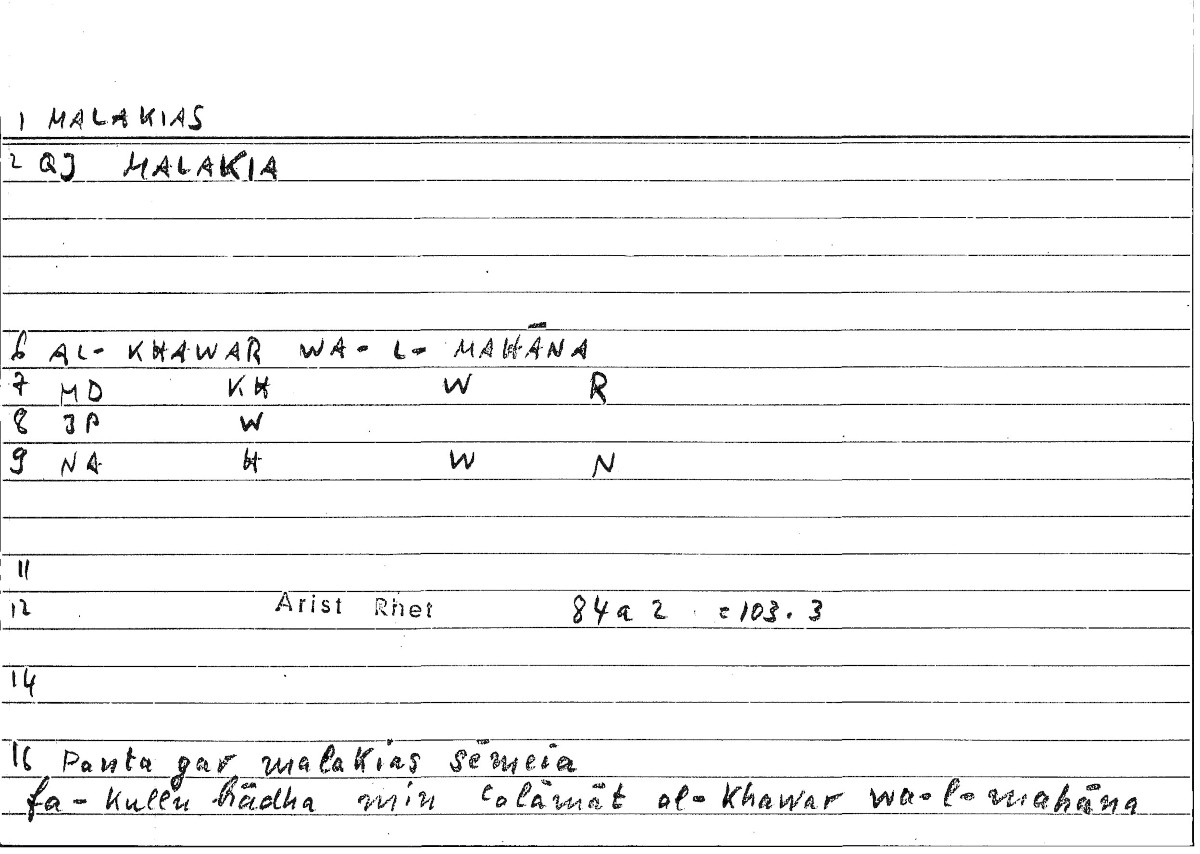 1 MALAKIAS
2 QJ MALAKIA
6 AL- KHAWAR WA- L- MAHĀNA
7 MD KH W R
8 JP W
9 NA H W N
11
12 Arist Rhet 84a 2 = 103. 3
14
16 Panta gar malakias sēmeia
fa- Kullu hādha min calāmāt al- Khawar wa-l-mahāna